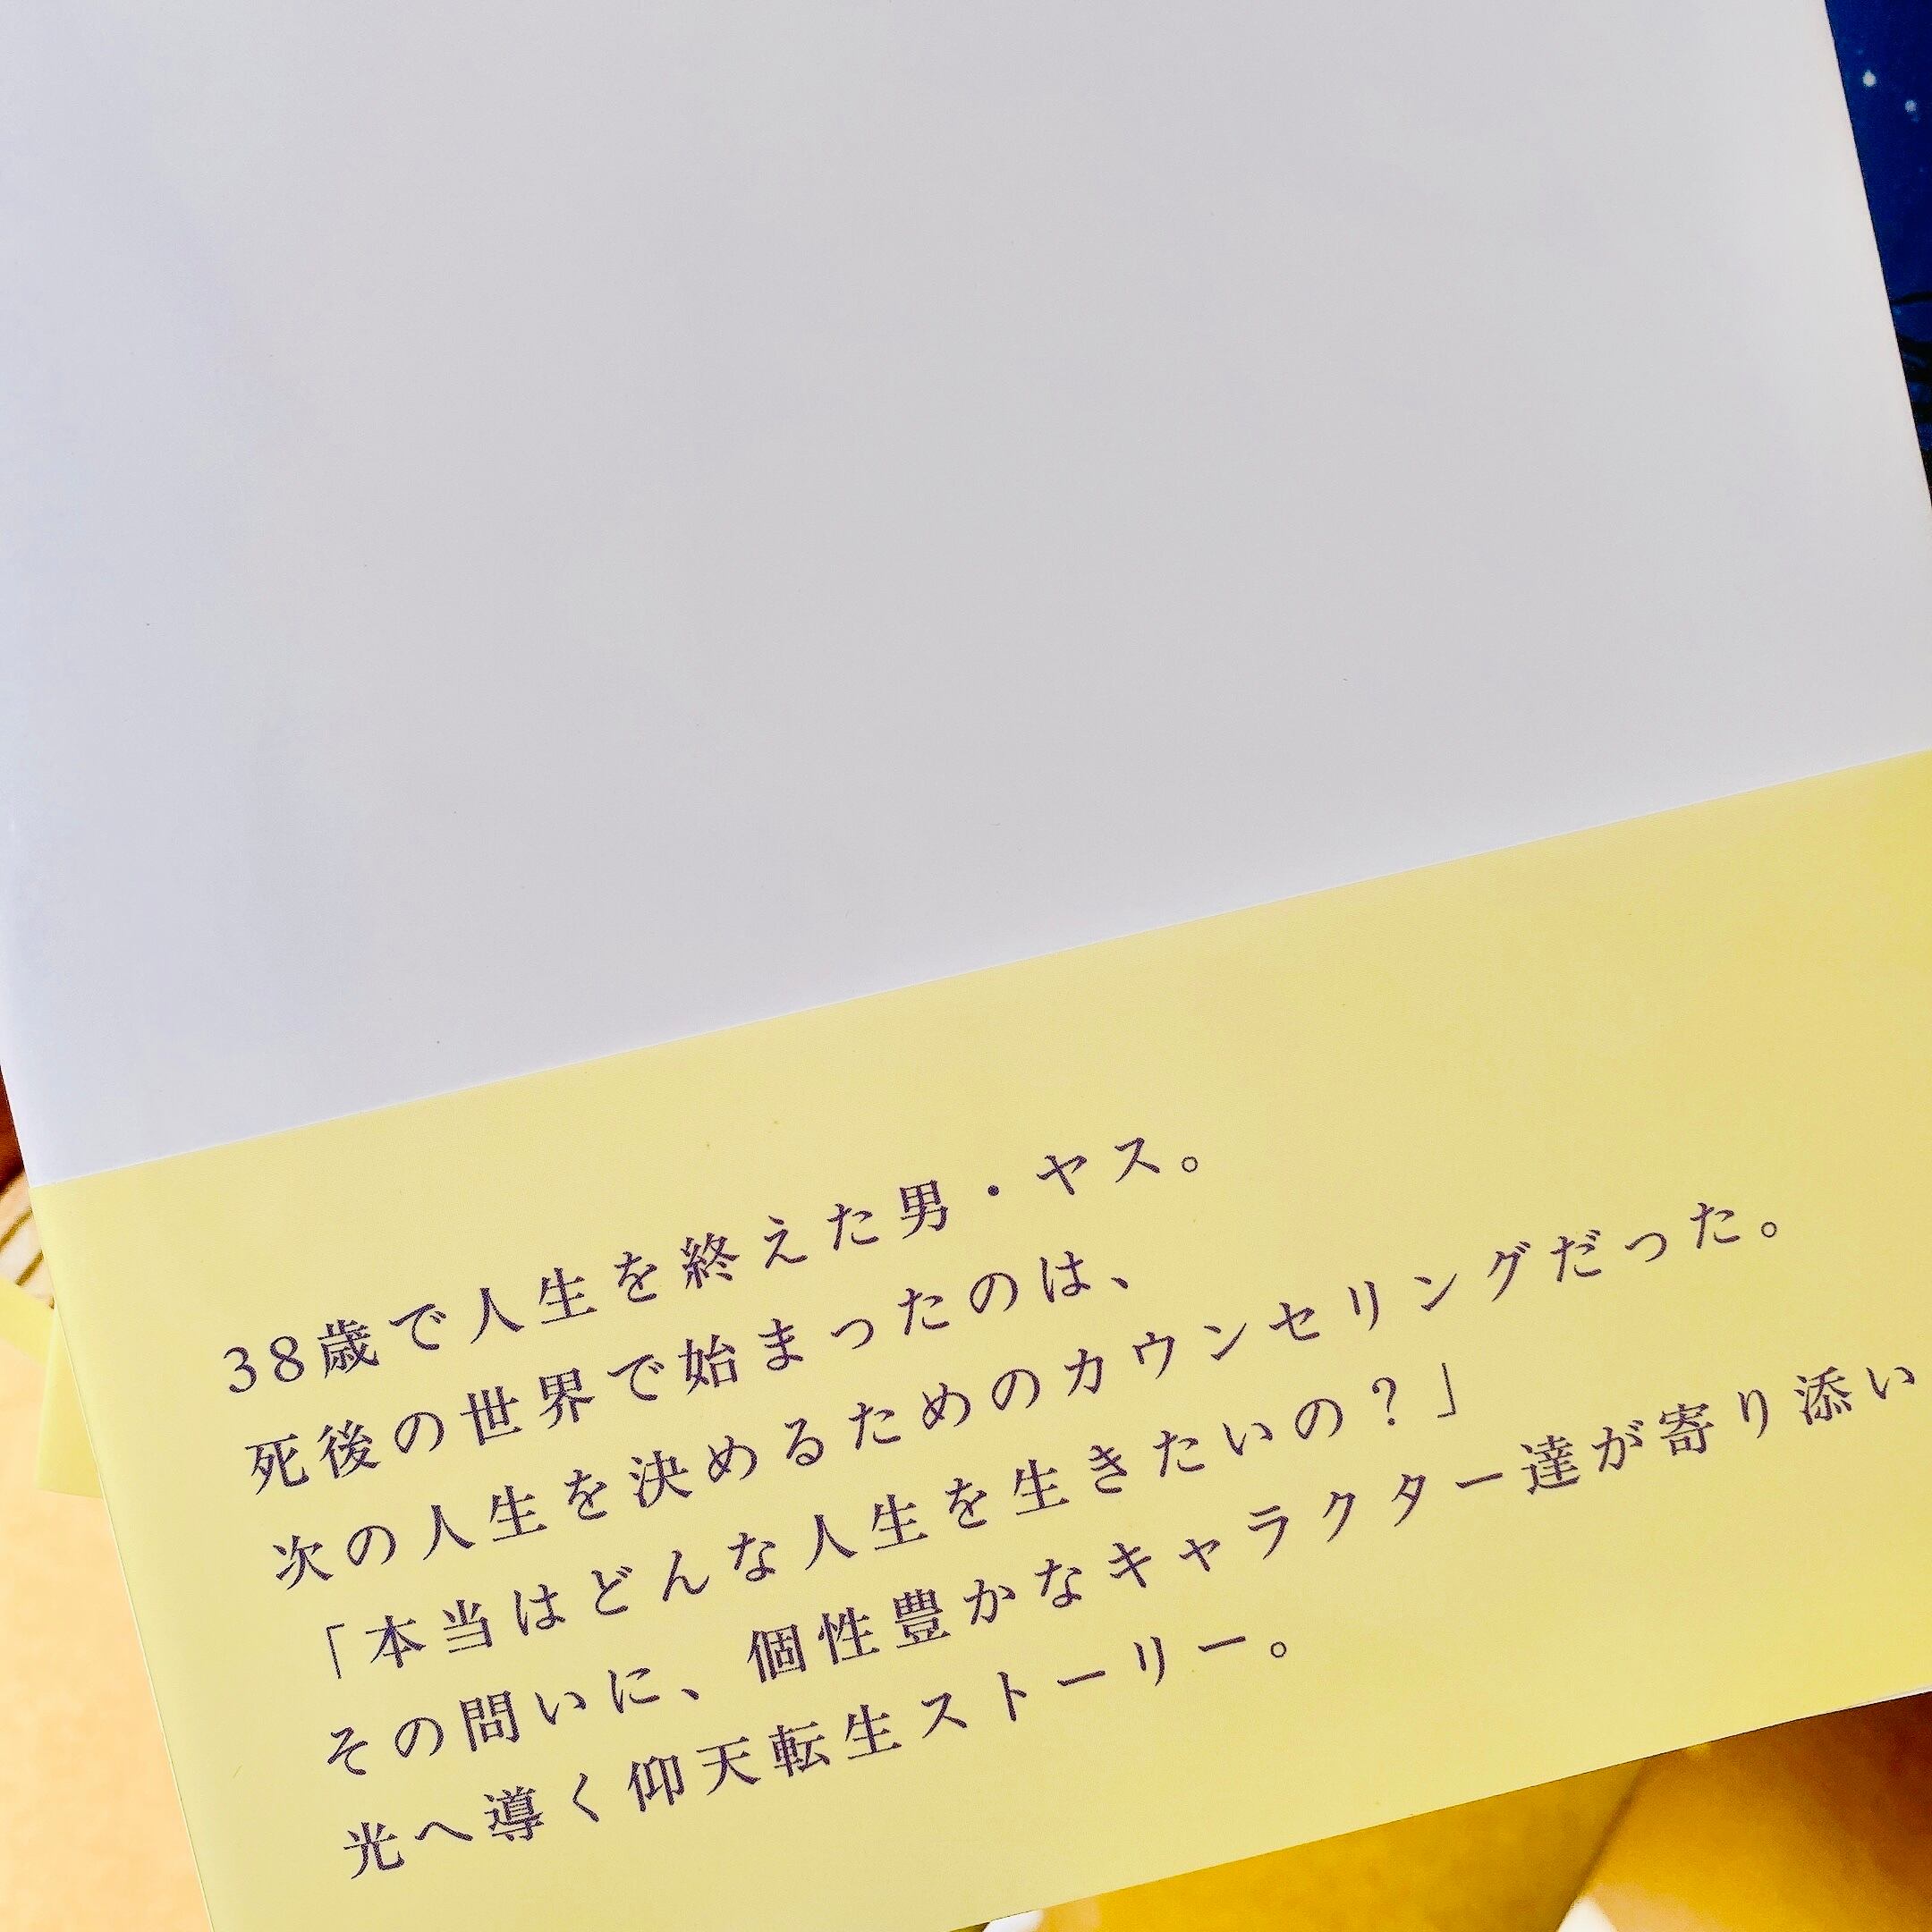 38歳で人生を終えた男・ヤス。
死後の世界で始まったのは、
次の人生を決めるためのカウンセリングだった。
「本当はどんな人生を生きたいの？」
その問いに、個性豊かなキャラクター達が寄り添い
光へ導く仰天転生ストーリー。